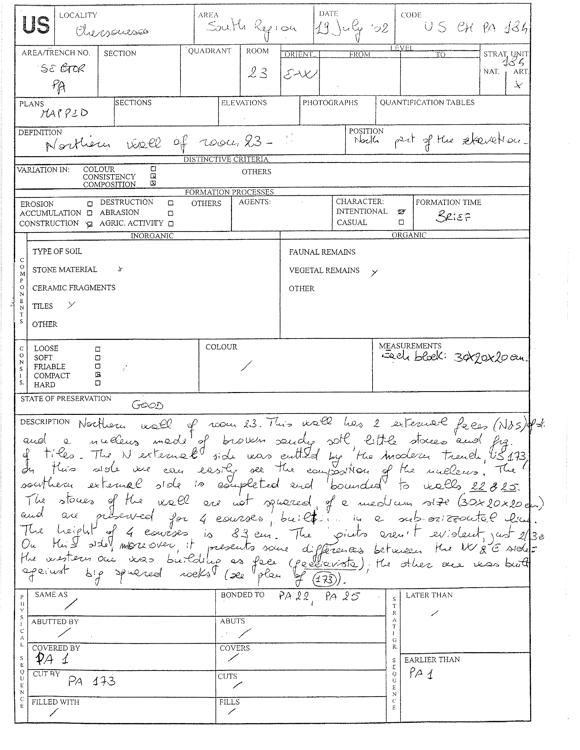 US
LOCALITY
Chersonesos
AREA
South Region
DATE
19 July '02
CODE
US CH PA 134
AREA/TRENCH NO.
SECTOR
PA
SECTION
QUADRANT
ROOM
23
LEVEL
ORIENT.
FROM
TO
E-W
STRAT. UNIT
134
NAT.
ART.
x
PLANS
MAPPED
SECTIONS
ELEVATIONS
PHOTOGRAPHS
QUANTIFICATION TABLES
DEFINITION
Northern wall of room 23 -
POSITION
North part of the
DISTINCTIVE CRITERIA
VARIATION IN:
COLOUR
CONSISTENCY
COMPOSITION
OTHERS
FORMATION PROCESSES
EROSION
DESTRUCTION
OTHERS
ACCUMULATION
ABRASION
CONSTRUCTION
AGRIC. ACTIVITY
AGENTS:
CHARACTER:
INTENTIONAL
CASUAL
FORMATION TIME
BRIEF
COMPONENTS
INORGANIC
ORGANIC
TYPE OF SOIL
STONE MATERIAL x
CERAMIC FRAGMENTS
TILES
OTHER
FAUNAL REMAINS
VEGETAL REMAINS
OTHER
CONSIS.
LOOSE
SOFT
FRIABLE
COMPACT
HARD
COLOUR
/
MEASUREMENTS
Each block: 30x20x20 cm.
STATE OF PRESERVATION
GOOD
DESCRIPTION Northern wall of room 23. This wall has 2 external faces (N&S)
and a nucleus made of brown sandy soil, little stones and frg.
of tiles. The N external side was cutted by the modern trench US 173.
In this side we can easily see the composition of the nucleus. The
southern external side is completed and bounded to walls 22 & 25.
The stones of the wall are not squared of a medium size (30x20x20 cm)
and are preserved for 4 courses, built... in a sub-orizzontal line.
The height of 4 courses is 83 cm. The joints aren't evident, just 2/3
On this side, moreover, it presents some differences between the W & E side:
the western one was building as face (facciavista), the other one was built
against big squared rocks (see plan of 173).
PHYSICAL SEQUENCE
SAME AS
/
BONDED TO PA 22, PA 25
ABUTTED BY
/
ABUTS
/
COVERED BY
PA 1
COVERS
/
CUT BY PA 173
CUTS
/
FILLED WITH
/
FILLS
/
STRATIGR. SEQUENCE
LATER THAN
/
EARLIER THAN
PA 1